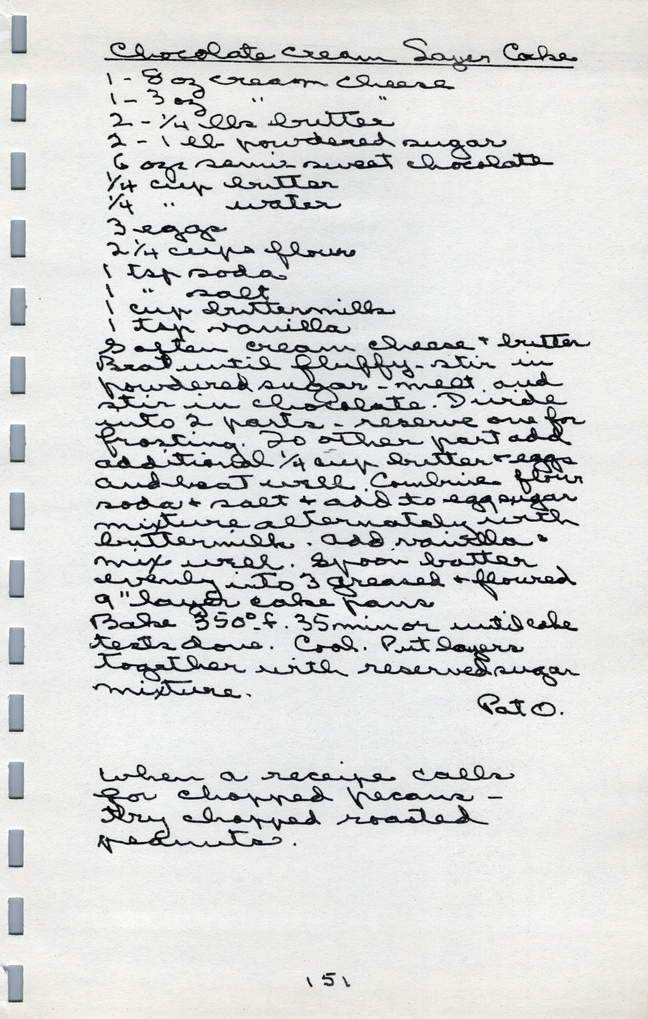 Chocolate Cream Layer Cake
1 - 8 oz cream cheese
1 - 3 oz " "
2 - 1/4 lbs butter
2 - 1 lb powdered sugar
6 ozs semi sweet chocolate
1/4 cup butter
1/4 " water
3 eggs
2 1/4 cups flour
1 tsp soda
1 " salt
1 cup buttermilk
1 tsp vanilla
Soften cream cheese + butter
Beat until fluffy - stir in
powdered sugar - melt and
stir in chocolate. Divide
into 2 parts - reserve one for
frosting. To other part add
additional 1/4 cup butter + eggs
and beat well. Combine flour
soda + salt + add to egg sugar
mixture alternately with
buttermilk. Add vanilla +
mix well. Spoon batter
evenly into 3 greased + floured
9" layer cake pans
Bake 350° f. 35 min or until cake
tests done. Cool. Put layers
together with reserved sugar
mixture.
Pat O.
When a receipe calls
for chopped pecans -
try chopped roasted
peanuts.
151